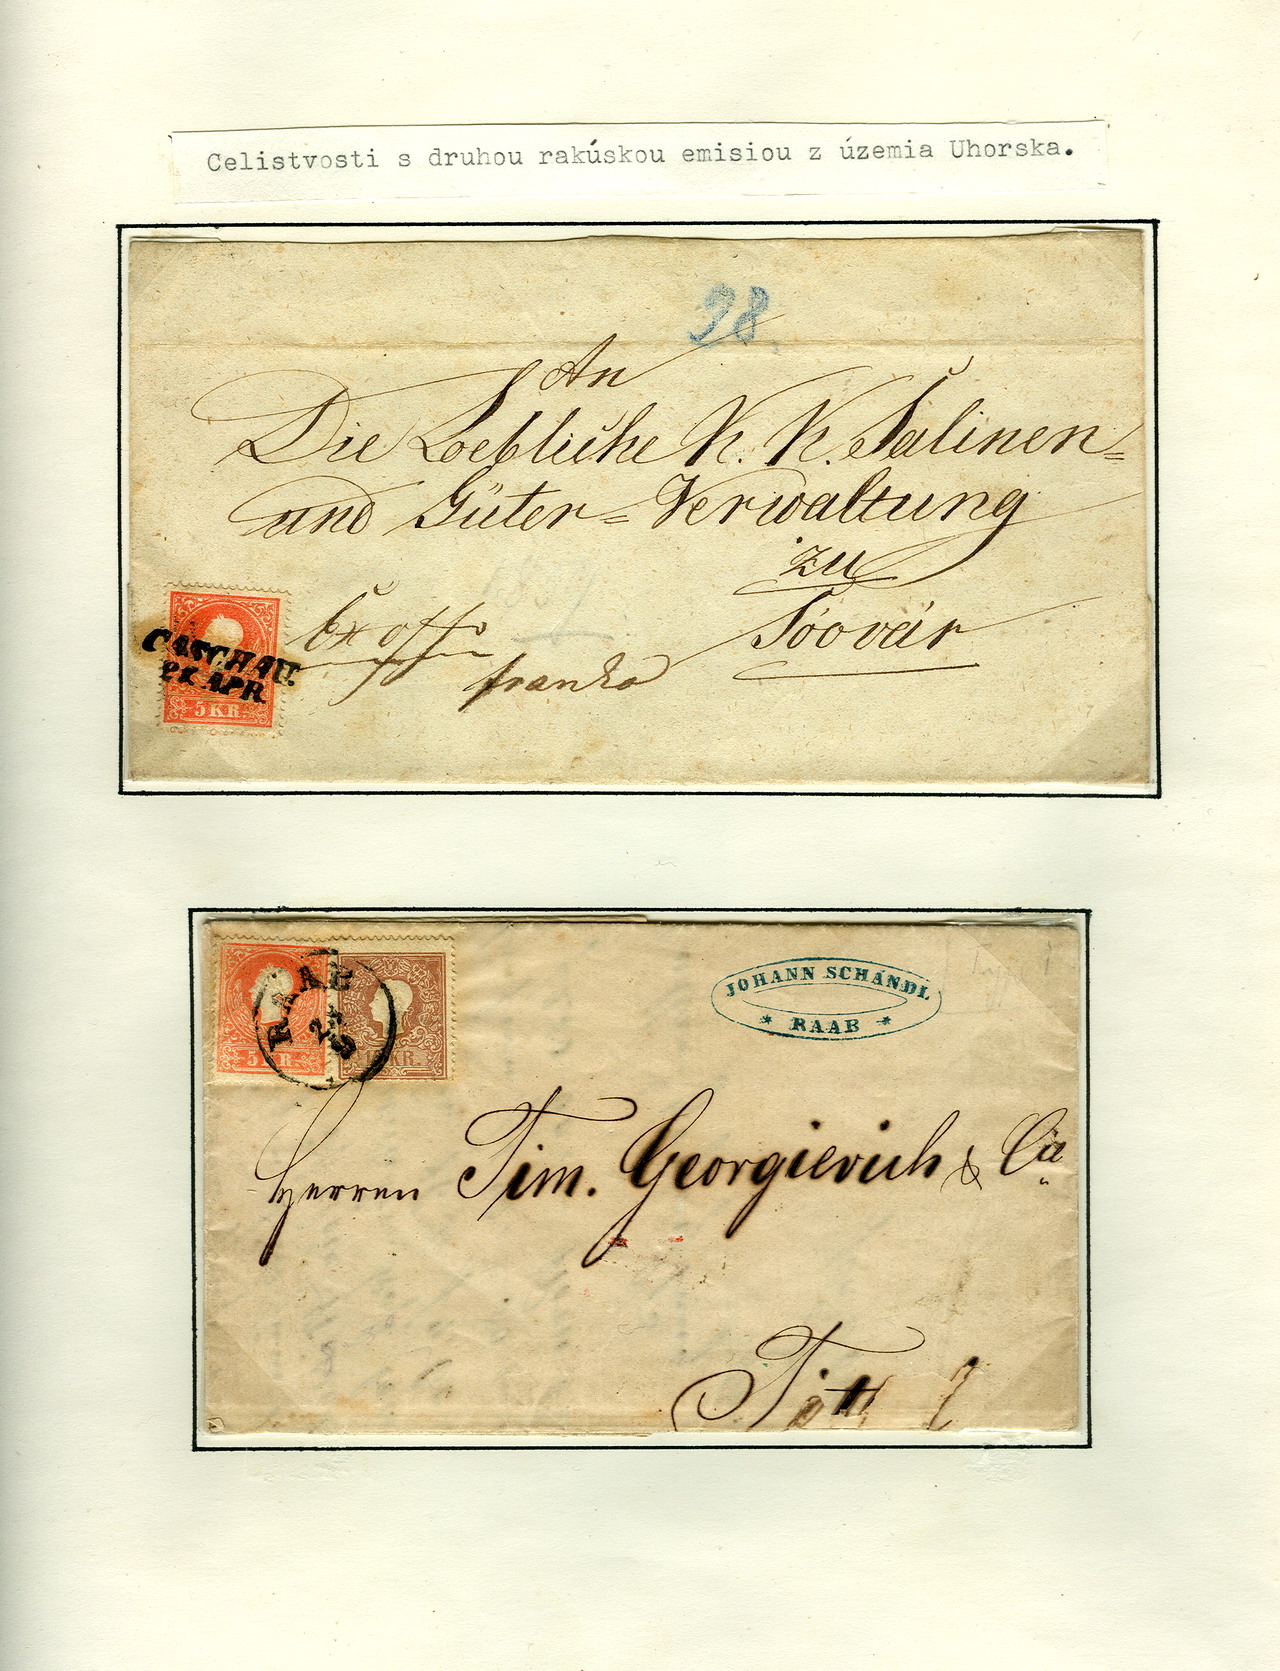 Celistvosti s druhou rakúskou emisiou z územia Uhorska.
98
An
Die Loebliche K. K. Salinen=
und Güter=Verwaltung
zu
Sóovár
Ex offo
franko
1859
CASCHAU.
APR.
5 KR.
RAAB
5 KR.
KR.
JOHANN SCHÄNDL
* RAAB *
Herren Tim. Georgievich & Cie